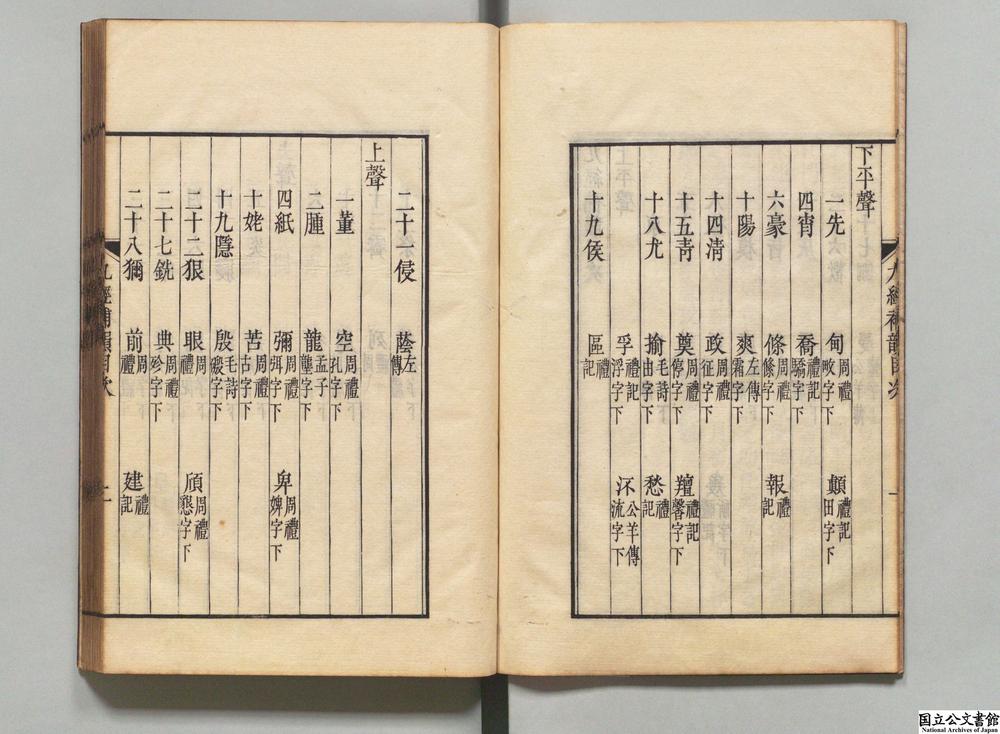 下平聲
一先 甸周禮畋字下 顛禮記田字下
四宵 喬禮記驕字下
六豪 條周禮絛字下 報禮記
十陽 爽左傳霜字下
十四淸 政周禮征字下
十五靑 奠周禮停字下 羶禮記馨字下
十八尤 揄毛詩由字下 愁禮記
孚禮記浮字下 汓公羊傳流字下
十九侯 區禮記
二十一侵 蔭左傳
上聲
一董 空周禮孔字下
二腫 龍孟子壟字下
四紙 彌周禮弭字下 卑周禮婢字下
十姥 苦周禮古字下
十九隱 殷毛詩磤字下
二十二狠 眼周禮 頎周禮懇字下
二十七銑 典周禮殄字下
二十八獮 前周禮 建禮記
九經補韻目次
九經補韻目次
国立公文書館
National Archives of Japan